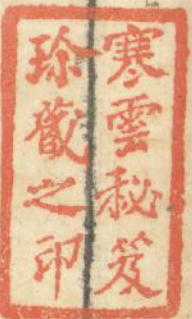 寒雲秘笈
珍藏之印